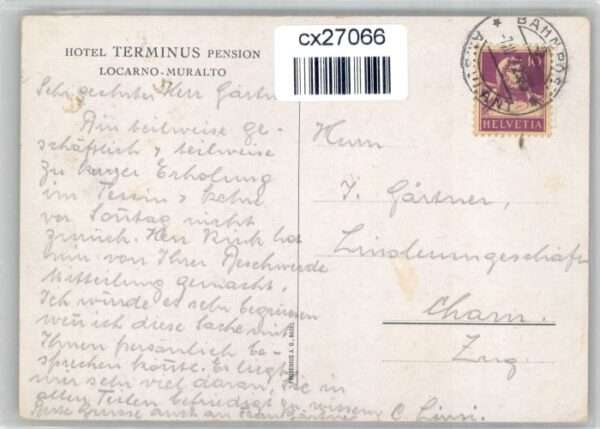 HOTEL TERMINUS PENSION
LOCARNO-MURALTO
cx27066
Sehr geehrter Herr Gärtn
Bin teilweise ge-
schäftlich & teilweise
zu kurzer Erholung
im Tessin & kehre
vor Sonntag nicht
zurück. Herr Rick hat
mir von Ihrer Beschwerde
Mitteilung gemacht.
Ich würde es sehr begrüssen
wenn ich diese Sache mit
Ihnen persönlich be-
sprechen könnte. Es liegt
mir sehr viel daran, Sie in
allen Teilen befriedigt zu wissen.
Beste Grüsse auch an Frau Gärtner
C. Linsi.
Herrn
J. Gärtner,
Linoleumgeschäft
Cham.
Zug.
HELVETIA
BAHNPOST
AMBULANT